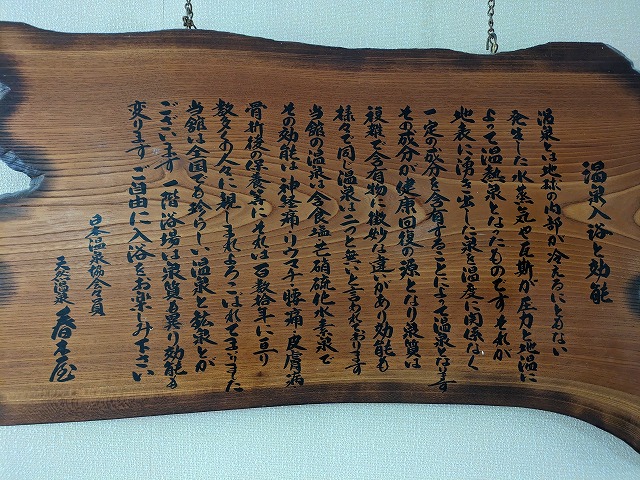 温泉入浴と効能
温泉とは地球の内部が冷えるにともない
発生した水蒸気や瓦斯が圧力と地温に
よって温熱泉となったものです それが
地表に湧き出した泉を温度に関係なく
一定の成分を含有することによって温泉と云います
その成分が健康回復の源となり泉質は
複雑で含有物に微妙な違いがあり効能も
様々で同じ温泉は二つと無いと言われております
当館の温泉は含食塩芒硝硫化水素泉で
その効能は神経痛・リウマチ・腰痛・皮膚病
骨折後の栄養等にそれは百数拾年に亘り
数多の人々に親しまれよろこばれてまいりました
当舘は全国でも珍らしい温泉と鉱泉とが
ございます 一階浴場は泉質も異り効能も
変ります ご自由に入浴をお楽しみ下さい
日本温泉協会会員
天然温泉 春木屋